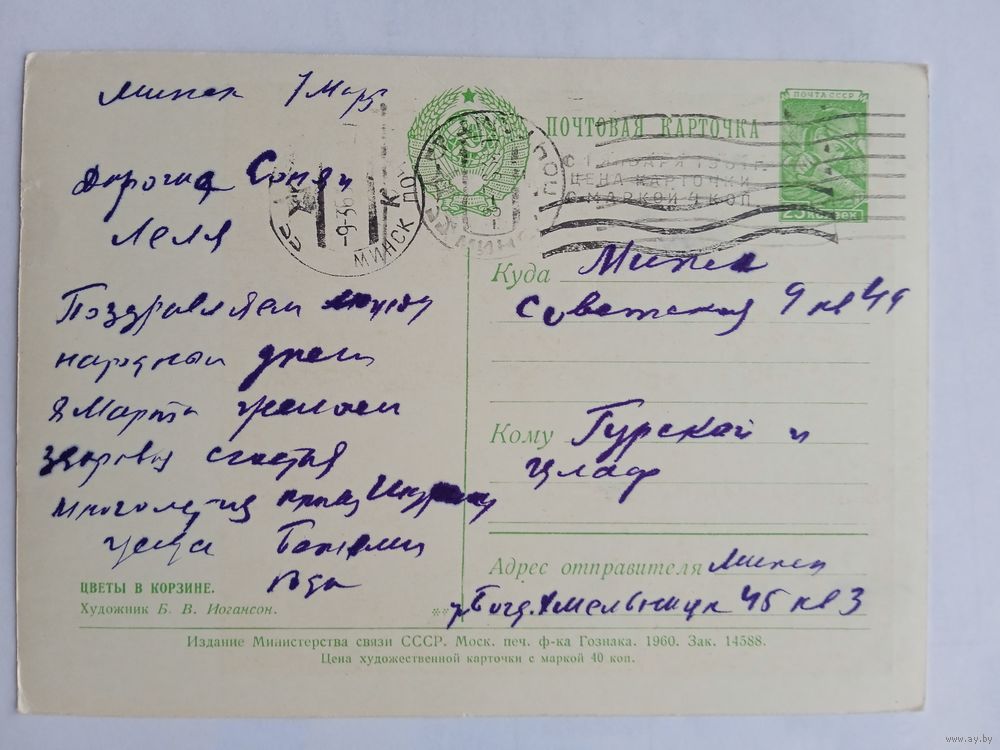 Минск 7 Март
Дорогие Соня и
Леля
Поздравляем
народным днем
8 Марта желаем
здоровья счастья
многолетия
ПОЧТА СССР
25 копеек
ПОЧТОВАЯ КАРТОЧКА
ЦЕНА КАРТОЧКИ
С МАРКОЙ 4 КОП
МИНСК
Куда Минск
Советская 9 кв 49
Кому Гурской и
Адрес отправителя Минск
Богд. Хмельницк 45 кв 3
ЦВЕТЫ В КОРЗИНЕ.
Художник Б. В. Иогансон.
Издание Министерства связи СССР. Моск. печ. ф-ка Гознака. 1960. Зак. 14588.
Цена художественной карточки с маркой 40 коп.
www.ay.by